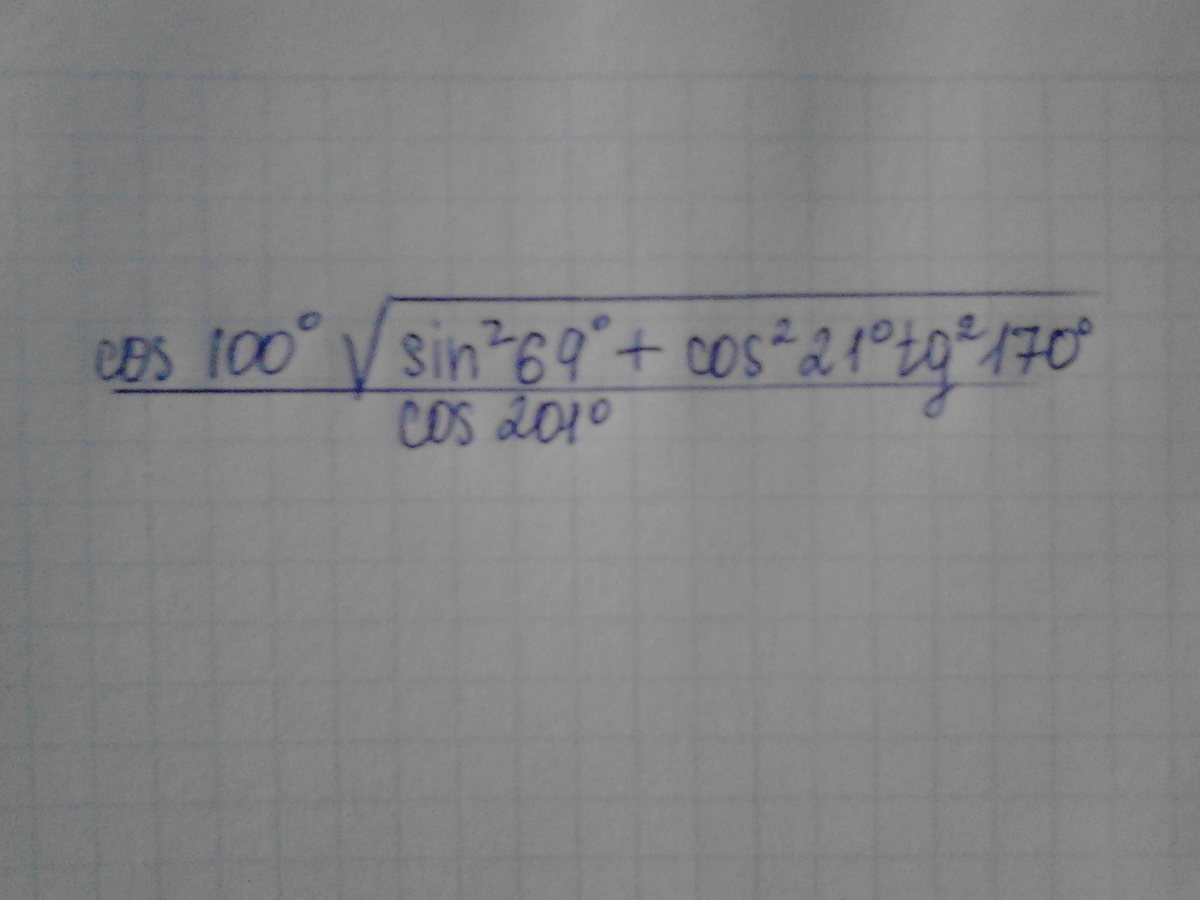 cos 100° √sin²69° + cos²21°tg²170°
cos 201°